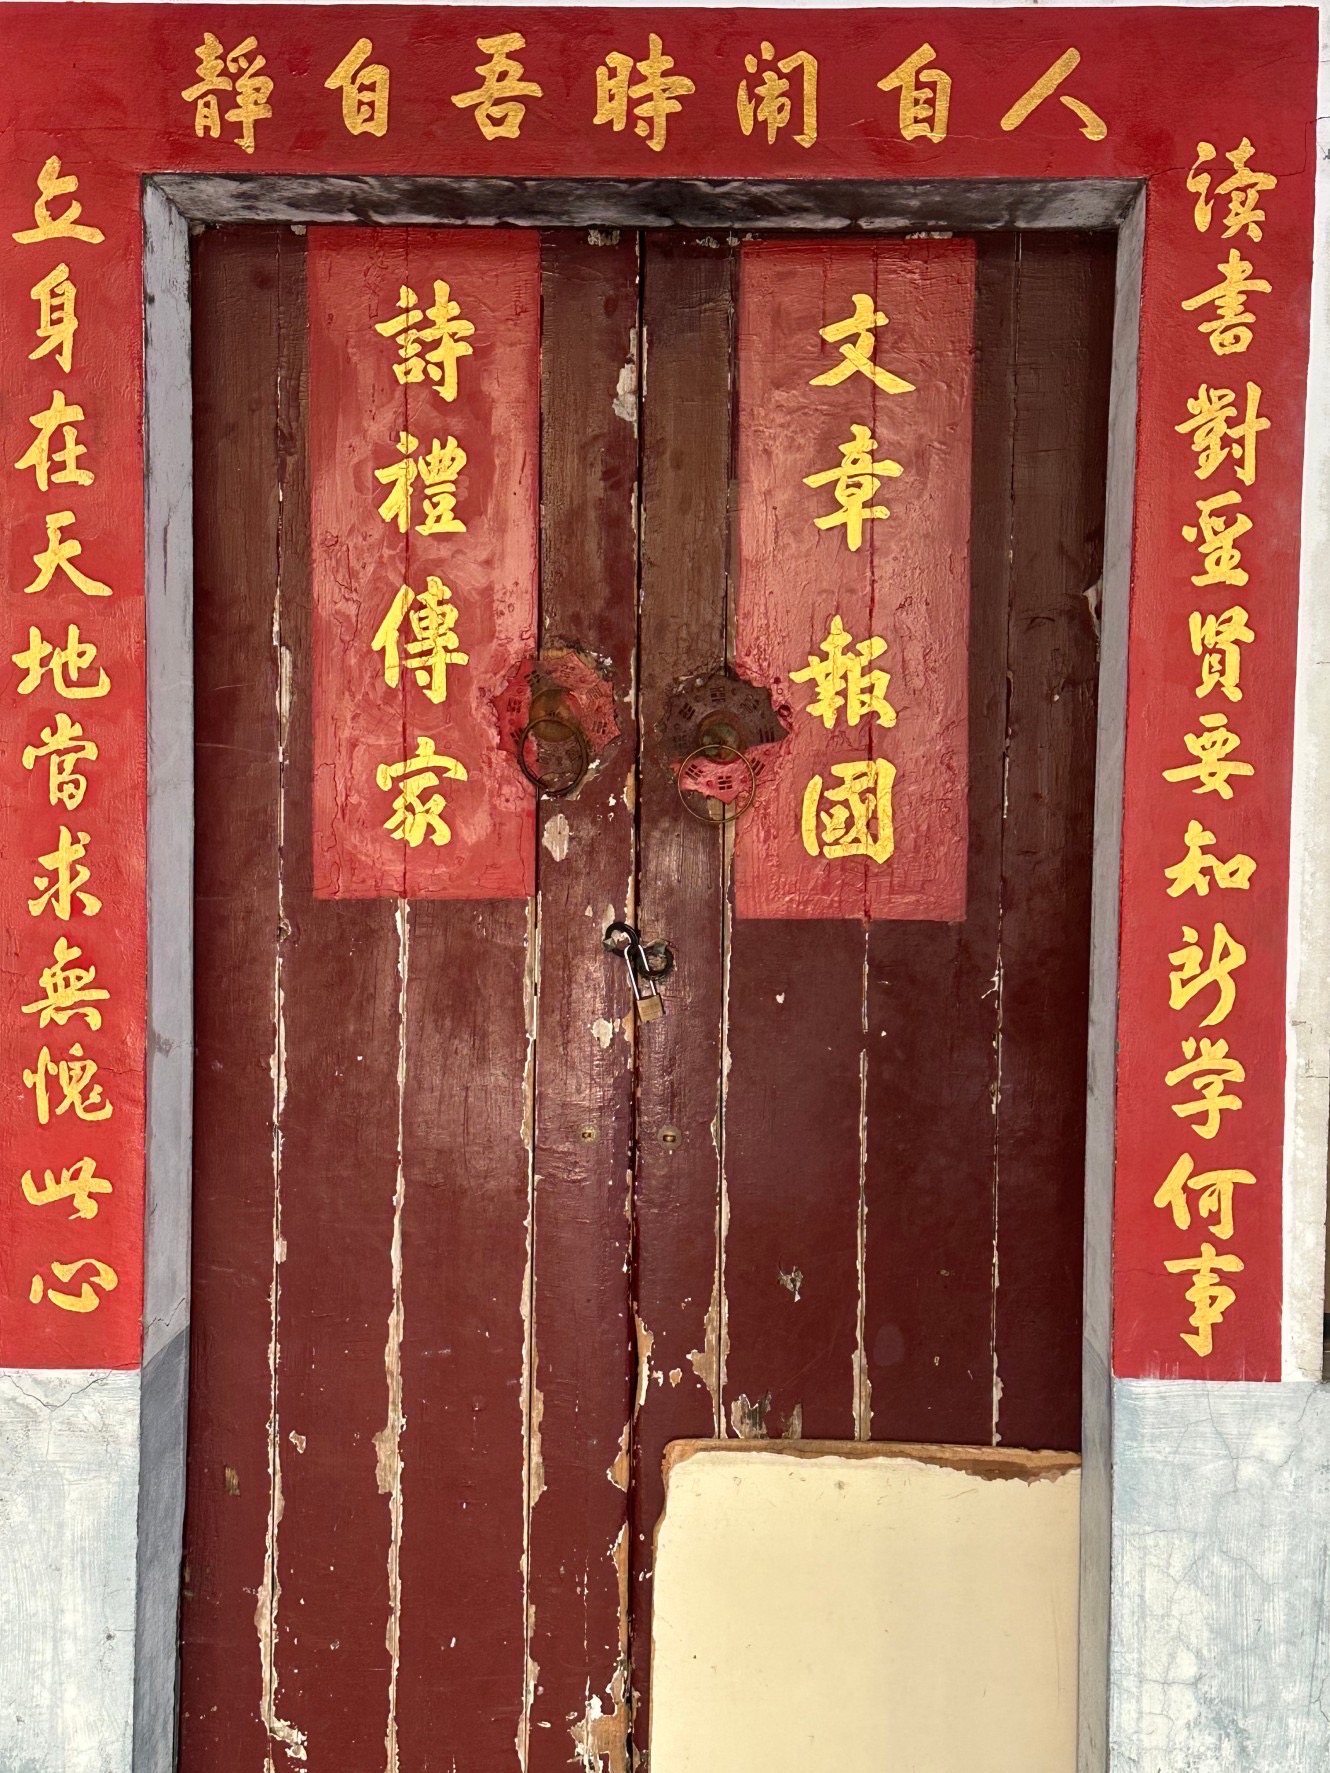 人自闹時吾自靜
读書對聖賢要知所学何事
立身在天地當求無愧此心
文章報國
詩禮傳家